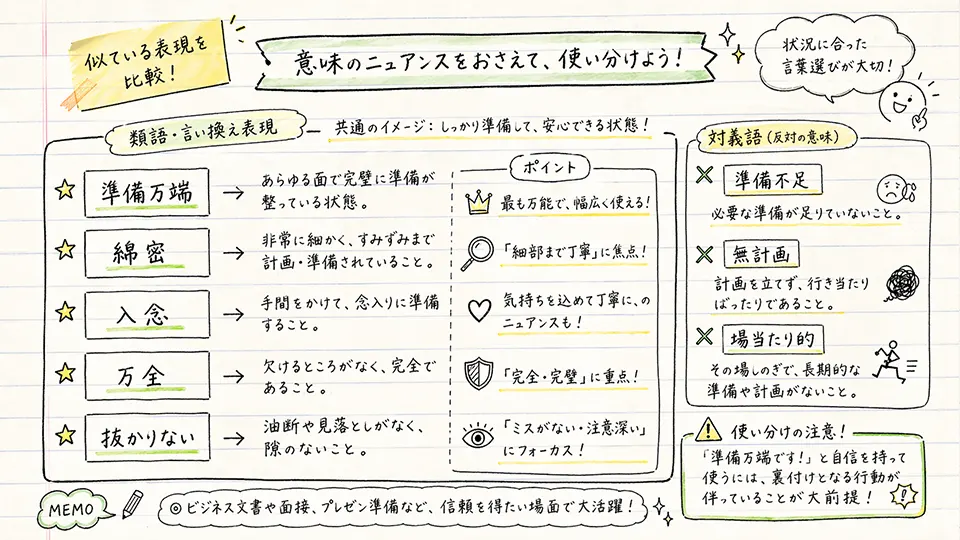 似ている表現を
比較！
意味のニュアンスをおさえて、使い分けよう！
状況に合った
言葉選びが大切！
類語・言い換え表現
共通のイメージ：しっかり準備して、安心できる状態！
ポイント
準備万端
あらゆる面で完璧に準備が
整っている状態。
最も万能で、幅広く使える！
綿密
非常に細かく、すみずみまで
計画・準備されていること。
「細部まで丁寧」に焦点！
入念
手間をかけて、念入りに準備
すること。
気持ちを込めて丁寧に、の
ニュアンスも！
万全
欠けるところがなく、完全で
あること。
「完全・完璧」に重点！
抜かりない
油断や見落としがなく、
隙のないこと。
「ミスがない・注意深い」
にフォーカス！
対義語（反対の意味）
準備不足
必要な準備が足りていないこと。
無計画
計画を立てず、行き当たり
ばったりであること。
場当たり的
その場しのぎで、長期的な
準備や計画がないこと。
使い分けの注意！
「準備万端です！」と自信を持って
使うには、裏付けとなる行動が
伴っていることが大前提！
MEMO
◎ビジネス文書や面接、プレゼン準備など、信頼を得たい場面で大活躍！